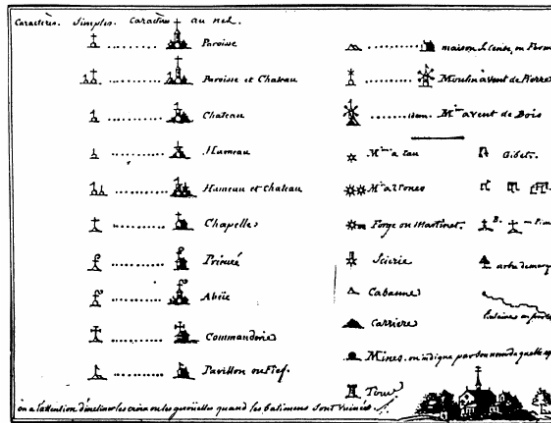 Caractères. Simples. Caractères au net.
Paroisse
Paroisse et Chateau
Chateau
Hameau
Hameau et Chateau
Chapelle
Prieuré
Abéie
Commanderie
Pavillon ou Fief.
maison Cense, ou Ferm
Moulin à vent de Pierre
idem. M.in a vent de Bois
M.in a Eau
Gibets
M.in a 2 Roues
Forge ou Martinet.
Scierie
arbre
Cabanne
Carriere
Mines. on indique par son nom de quelle
Tour
on a l'attention d'incliner les croix ou les girouettes quand les batimens sont ruinés.